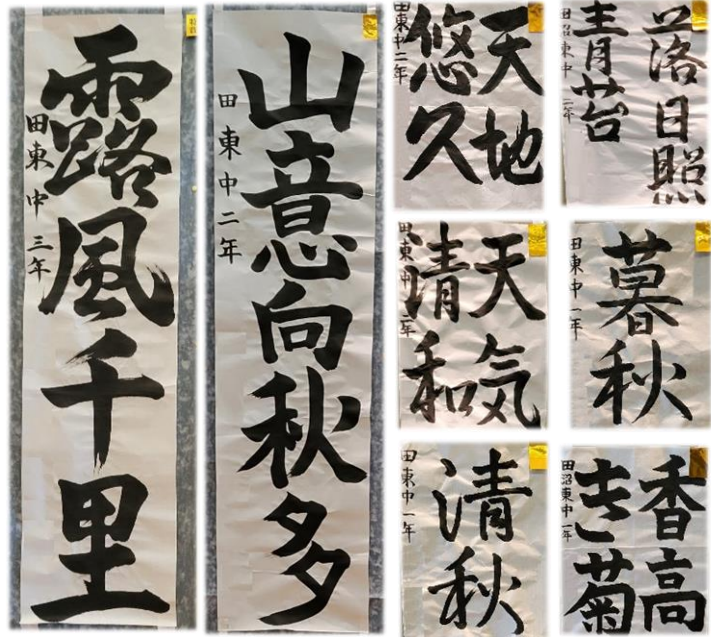 露風千里
田東中三年
山意向秋多
田東中二年
天地
悠久
田東中二年
落日照
青苔
田沼東中二年
天気
清和
田東中二年
暮秋
田東中一年
清秋
田東中一年
香高
き菊
田沼東中一年